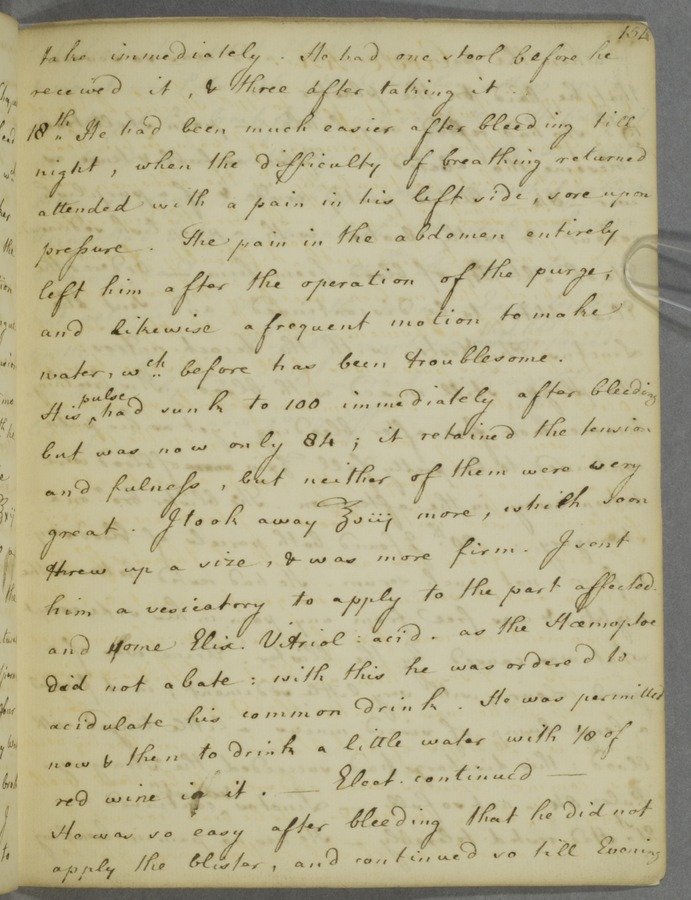 154
take immediately. He had one stool before he
received it, & three after taking it.
18th He had been much easier after bleeding till
night, when the difficulty of breathing returned
attended with a pain in his left side, sore upon
pressure. The pain in the abdomen entirely
left him after the operation of the purge,
and likewise a frequent motion to make
water, wch before has been troublesome.
His pulse had sunk to 100 immediately after bleeding
but was now only 84; it retained the tension
and fulness, but neither of them were very
great. I took away ℥viij more, which soon
threw up a size, & was more firm. I sent
him a vesicatory to apply to the part affected.
and some Elix. Vitriol: acid. as the Hæmoptoe
did not abate: with this he was ordered to
acidulate his common drink. He was permitted
now & then to drink a little water with 1/8 of
red wine in it. — Elect. continued —
He was so easy after bleeding that he did not
apply the blister, and continued so till Evening